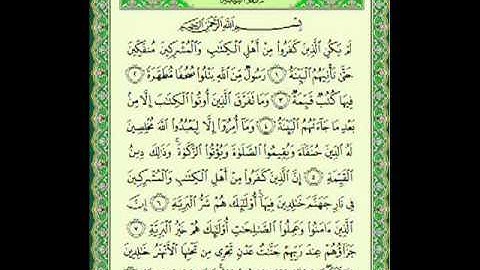 بِسْمِ اللَّهِ الرَّحْمَٰنِ الرَّحِيمِ
لَمْ يَكُنِ الَّذِينَ كَفَرُوا مِنْ أَهْلِ الْكِتَٰبِ وَالْمُشْرِكِينَ مُنفَكِّينَ
حَتَّىٰ تَأْتِيَهُمُ الْبَيِّنَةُ ١ رَسُولٌ مِّنَ اللَّهِ يَتْلُوا صُحُفًا مُّطَهَّرَةً ٢
فِيهَا كُتُبٌ قَيِّمَةٌ ٣ وَمَا تَفَرَّقَ الَّذِينَ أُوتُوا الْكِتَٰبَ إِلَّا مِنۢ
بَعْدِ مَا جَاءَتْهُمُ الْبَيِّنَةُ ٤ وَمَا أُمِرُوا إِلَّا لِيَعْبُدُوا اللَّهَ مُخْلِصِينَ
لَهُ الدِّينَ حُنَفَاءَ وَيُقِيمُوا الصَّلَوٰةَ وَيُؤْتُوا الزَّكَوٰةَ ۚ وَذَٰلِكَ دِينُ
الْقَيِّمَةِ ٥ إِنَّ الَّذِينَ كَفَرُوا مِنْ أَهْلِ الْكِتَٰبِ وَالْمُشْرِكِينَ
فِي نَارِ جَهَنَّمَ خَٰلِدِينَ فِيهَا ۚ أُولَٰئِكَ هُمْ شَرُّ الْبَرِيَّةِ ٦ إِنَّ
الَّذِينَ ءَامَنُوا وَعَمِلُوا الصَّٰلِحَٰتِ أُولَٰئِكَ هُمْ خَيْرُ الْبَرِيَّةِ ٧
جَزَاؤُهُمْ عِندَ رَبِّهِمْ جَنَّٰتُ عَدْنٍ تَجْرِي مِن تَحْتِهَا الْأَنْهَٰرُ خَٰلِدِينَ